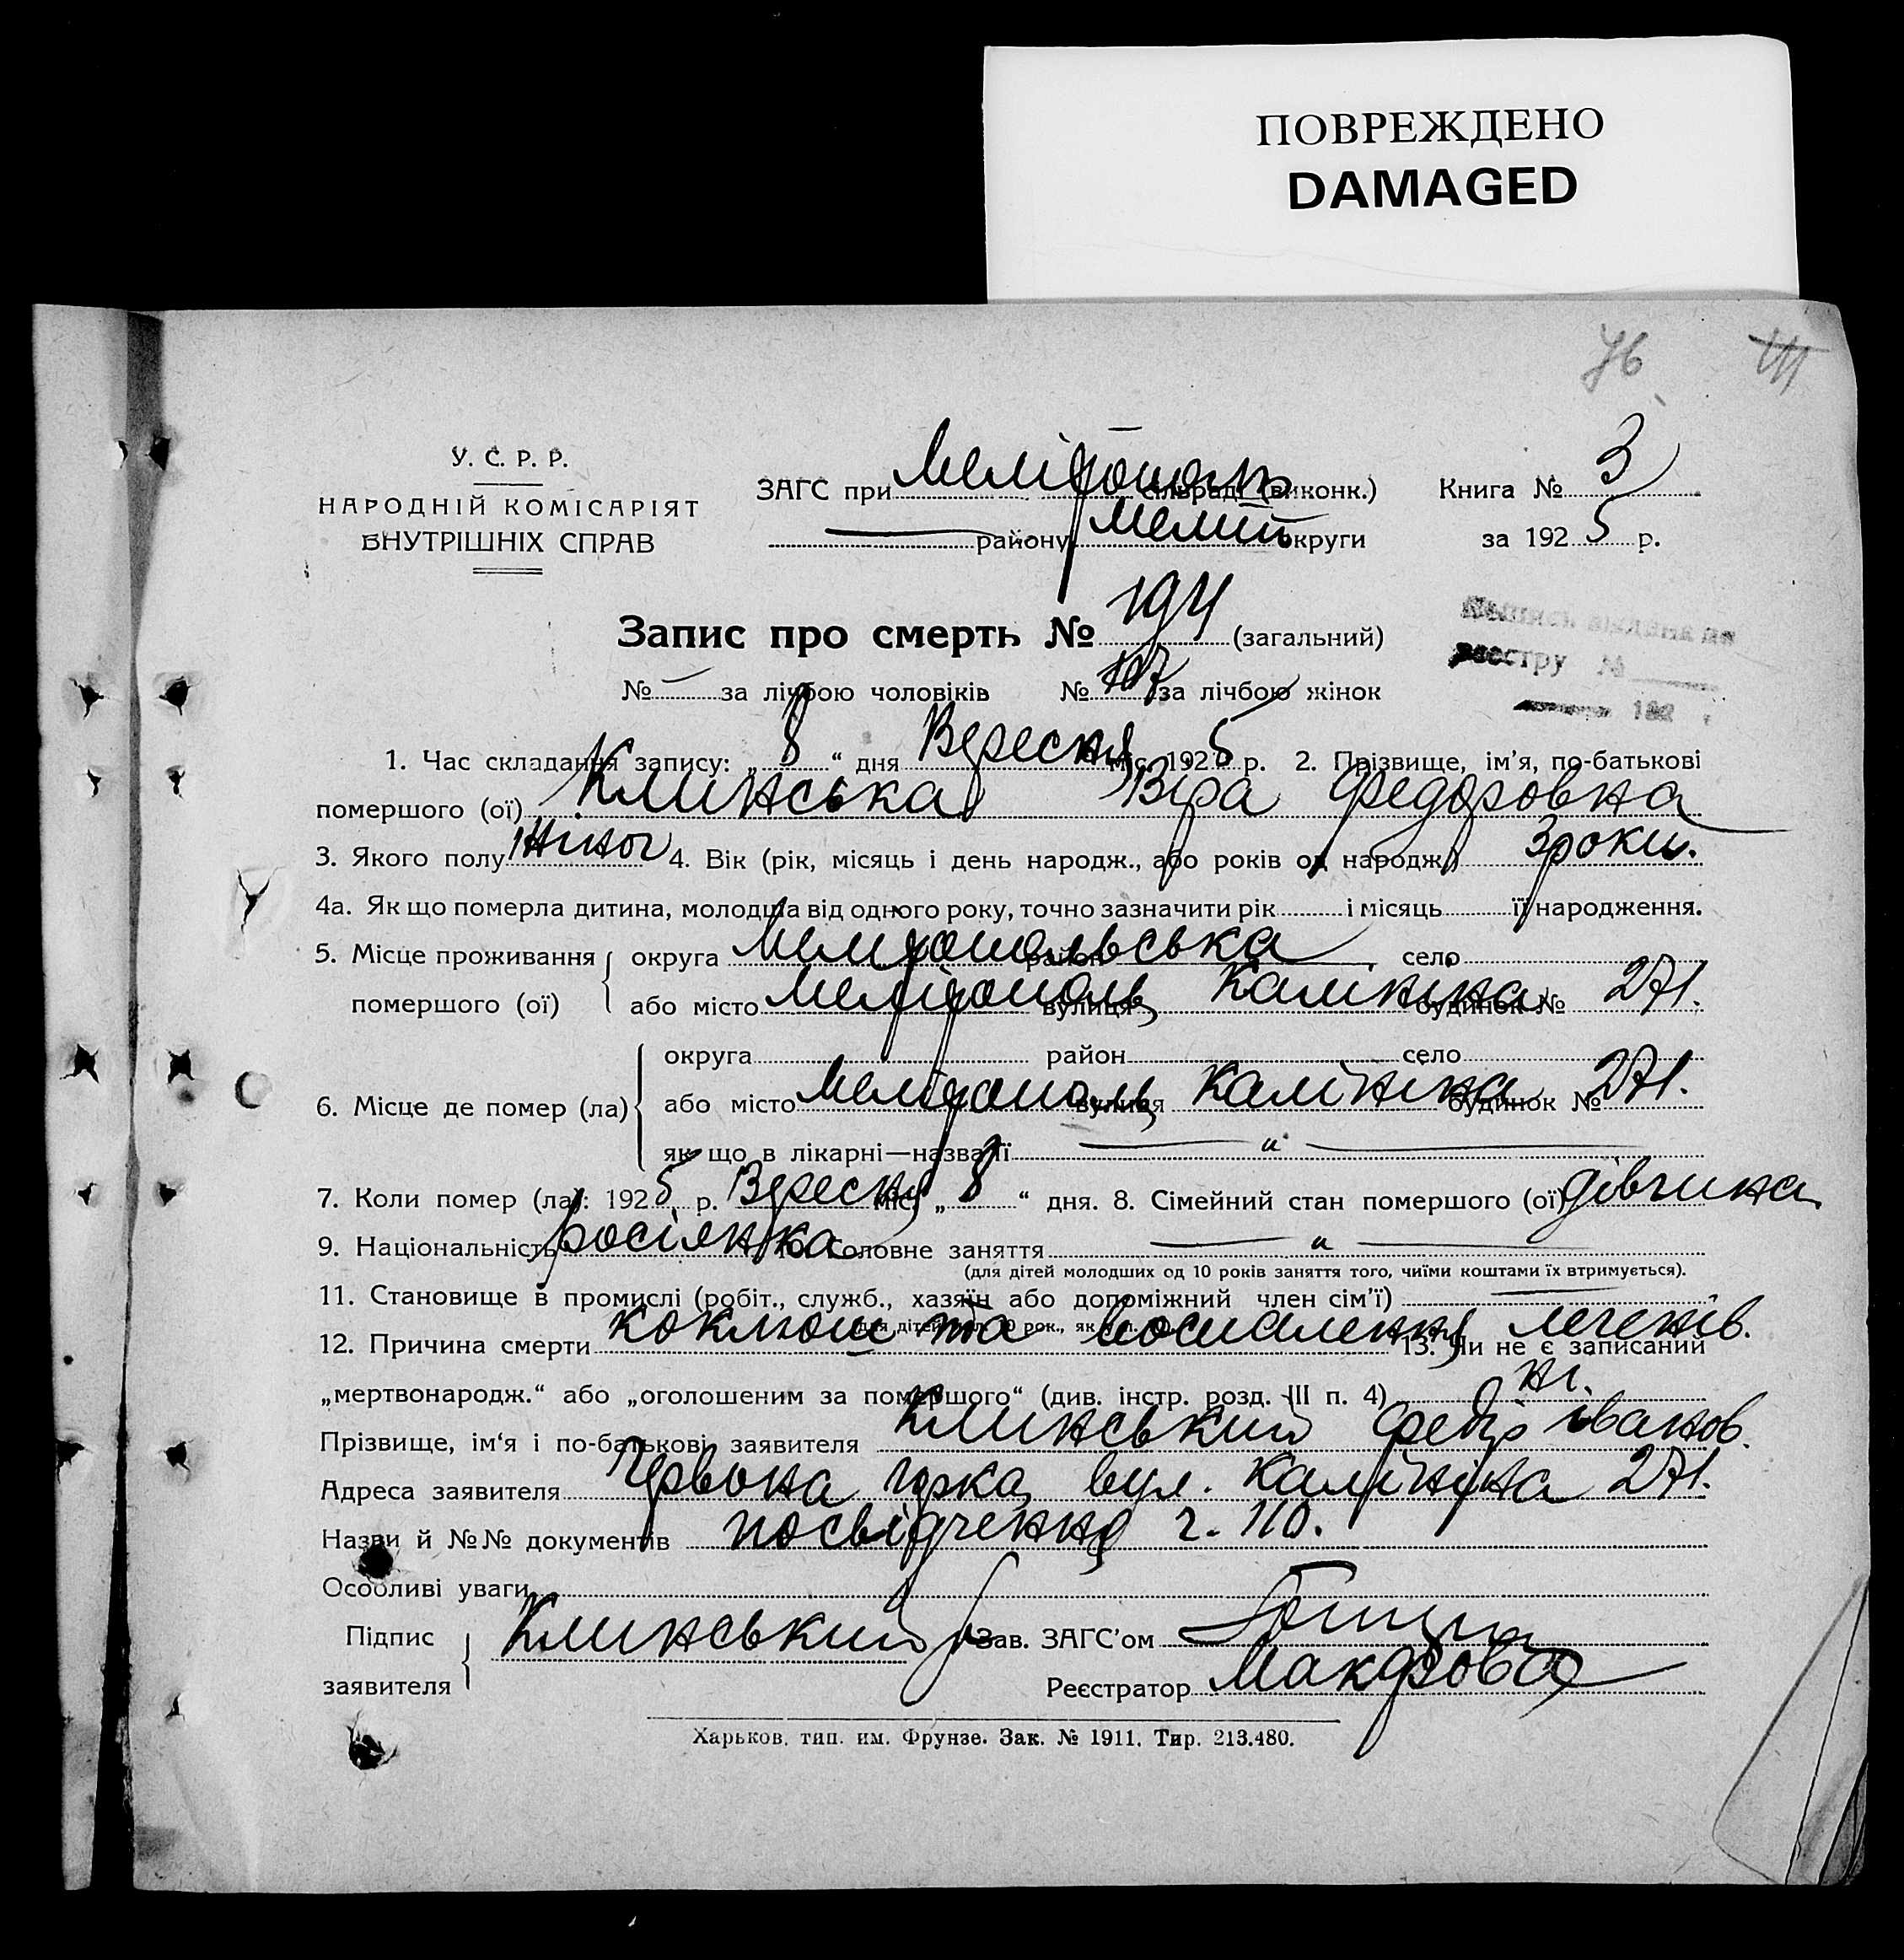 ПОВРЕЖДЕНО
DAMAGED
76
У. С. Р. Р.
НАРОДНІЙ КОМІСАРІЯТ
ВНУТРІШНІХ СПРАВ
ЗАГС при Мелітополь сільраді (виконк.) Книга № 3
району Меліт округи за 1925 р.
Запис про смерть № 194 (загальний)
№ за лічбою чоловіків № 107 за лічбою жінок
реєстру №
192
1. Час складання запису: „8“ дня Вересня міс. 1925 р. 2. Прізвище, ім'я, по-батькові
помершого (ої) Клинська Віра Федоровна
3. Якого полу жіноч 4. Вік (рік, місяць і день народж., або років од народж.) 3 роки.
4а. Як що померла дитина, молодша від одного року, точно зазначити рік і місяць її народження.
5. Місце проживання помершого (ої) округа Мелітопольська район село
або місто Мелітополь вулиця Калініна будинок № 271.
6. Місце де помер (ла) округа район село
або місто Мелітополь вулиця Калініна будинок № 271.
як що в лікарні—назва її — „ —
7. Коли помер (ла): 1925 р. Вересня міс. „8“ дня. 8. Сімейний стан помершого (ої) дівчина
9. Національність росіянка 10. Головне заняття — „ —
(для дітей молодших од 10 років заняття того, чиїми коштами їх втримується).
11. Становище в промислі (робіт., служб., хазяїн або допоміжний член сім'ї) —
12. Причина смерти коклюш та воспалення легенів. 13. Чи не є записаний
„мертвонародж.“ або „оголошеним за помершого“ (див. інстр. розд. III п. 4) ні.
Прізвище, ім'я і по-батькові заявителя Клинський Федір Іванов.
Адреса заявителя Червона гірка вул. Калініна 271.
Назви й №№ документів посвідчення ч. 110.
Особливі уваги
Підпис заявителя Клинський Зав. ЗАГС'ом
Реєстратор
Харьков, тип. им. Фрунзе. Зак. № 1911. Тир. 213.480.